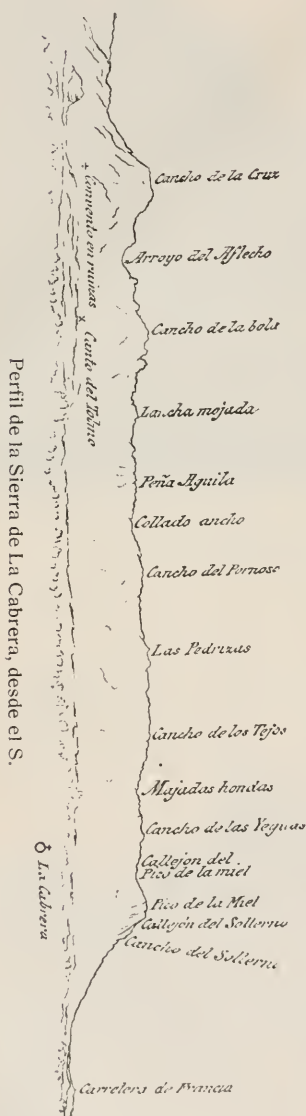 Cancho de la Cruz
Arroyo del Aflecho
Cancho de la bola
Lancha mojada
Peña Aguila
Collado ancho
Cancho del Pornoso
Las Pedrizas
Cancho de los Tejos
Majadas hondas
Cancho de las Yeguas
Callejon del
Pico de la miel
Pico de la Miel
Callejón del Sollerno
Cancho del Sollerno
Carretera de Francia
+ Convento en ruinas
x Canto del Tolmo
La Cabrera
Perfil de la Sierra de La Cabrera, desde el S.